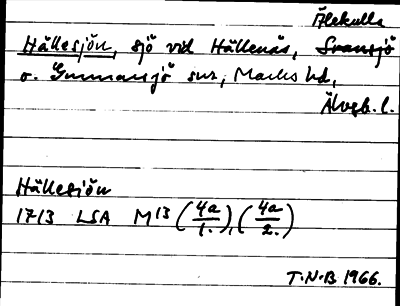 Älekulla
Hällesjön, sjö vid Hällenäs, Svansjö
o. Gunnarsjö snr, Marks hd,
Älvsb. l.
Hällesjön
1713 LSA M13 (4a/1.), (4a/2.)
T.N-B 1966.